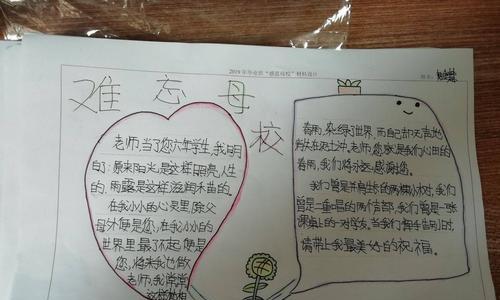 2019年毕业班“感恩母校”材料设计
难忘母校
老师,当了您六年学生,我明
白了:原来阳光是这样明亮,人生
的雨露是这样滋润禾苗的。
在我小小的心灵里,除父
母外便是您,在我小小的
世界里最了不起便是
您,将来我也做
老师,我常常
这样梦想
春雨,染绿了世界,而自己却无声地
消失在泥土中。老师,您就是我们心田的
春雨,我们将永远感谢您。
我们曾是并肩生长的两棵小树,我们
曾是一重唱的两个声部,我们曾是一张
课桌上的一对学友。当我们挥手告别时,
请带上我最美好的祝福。